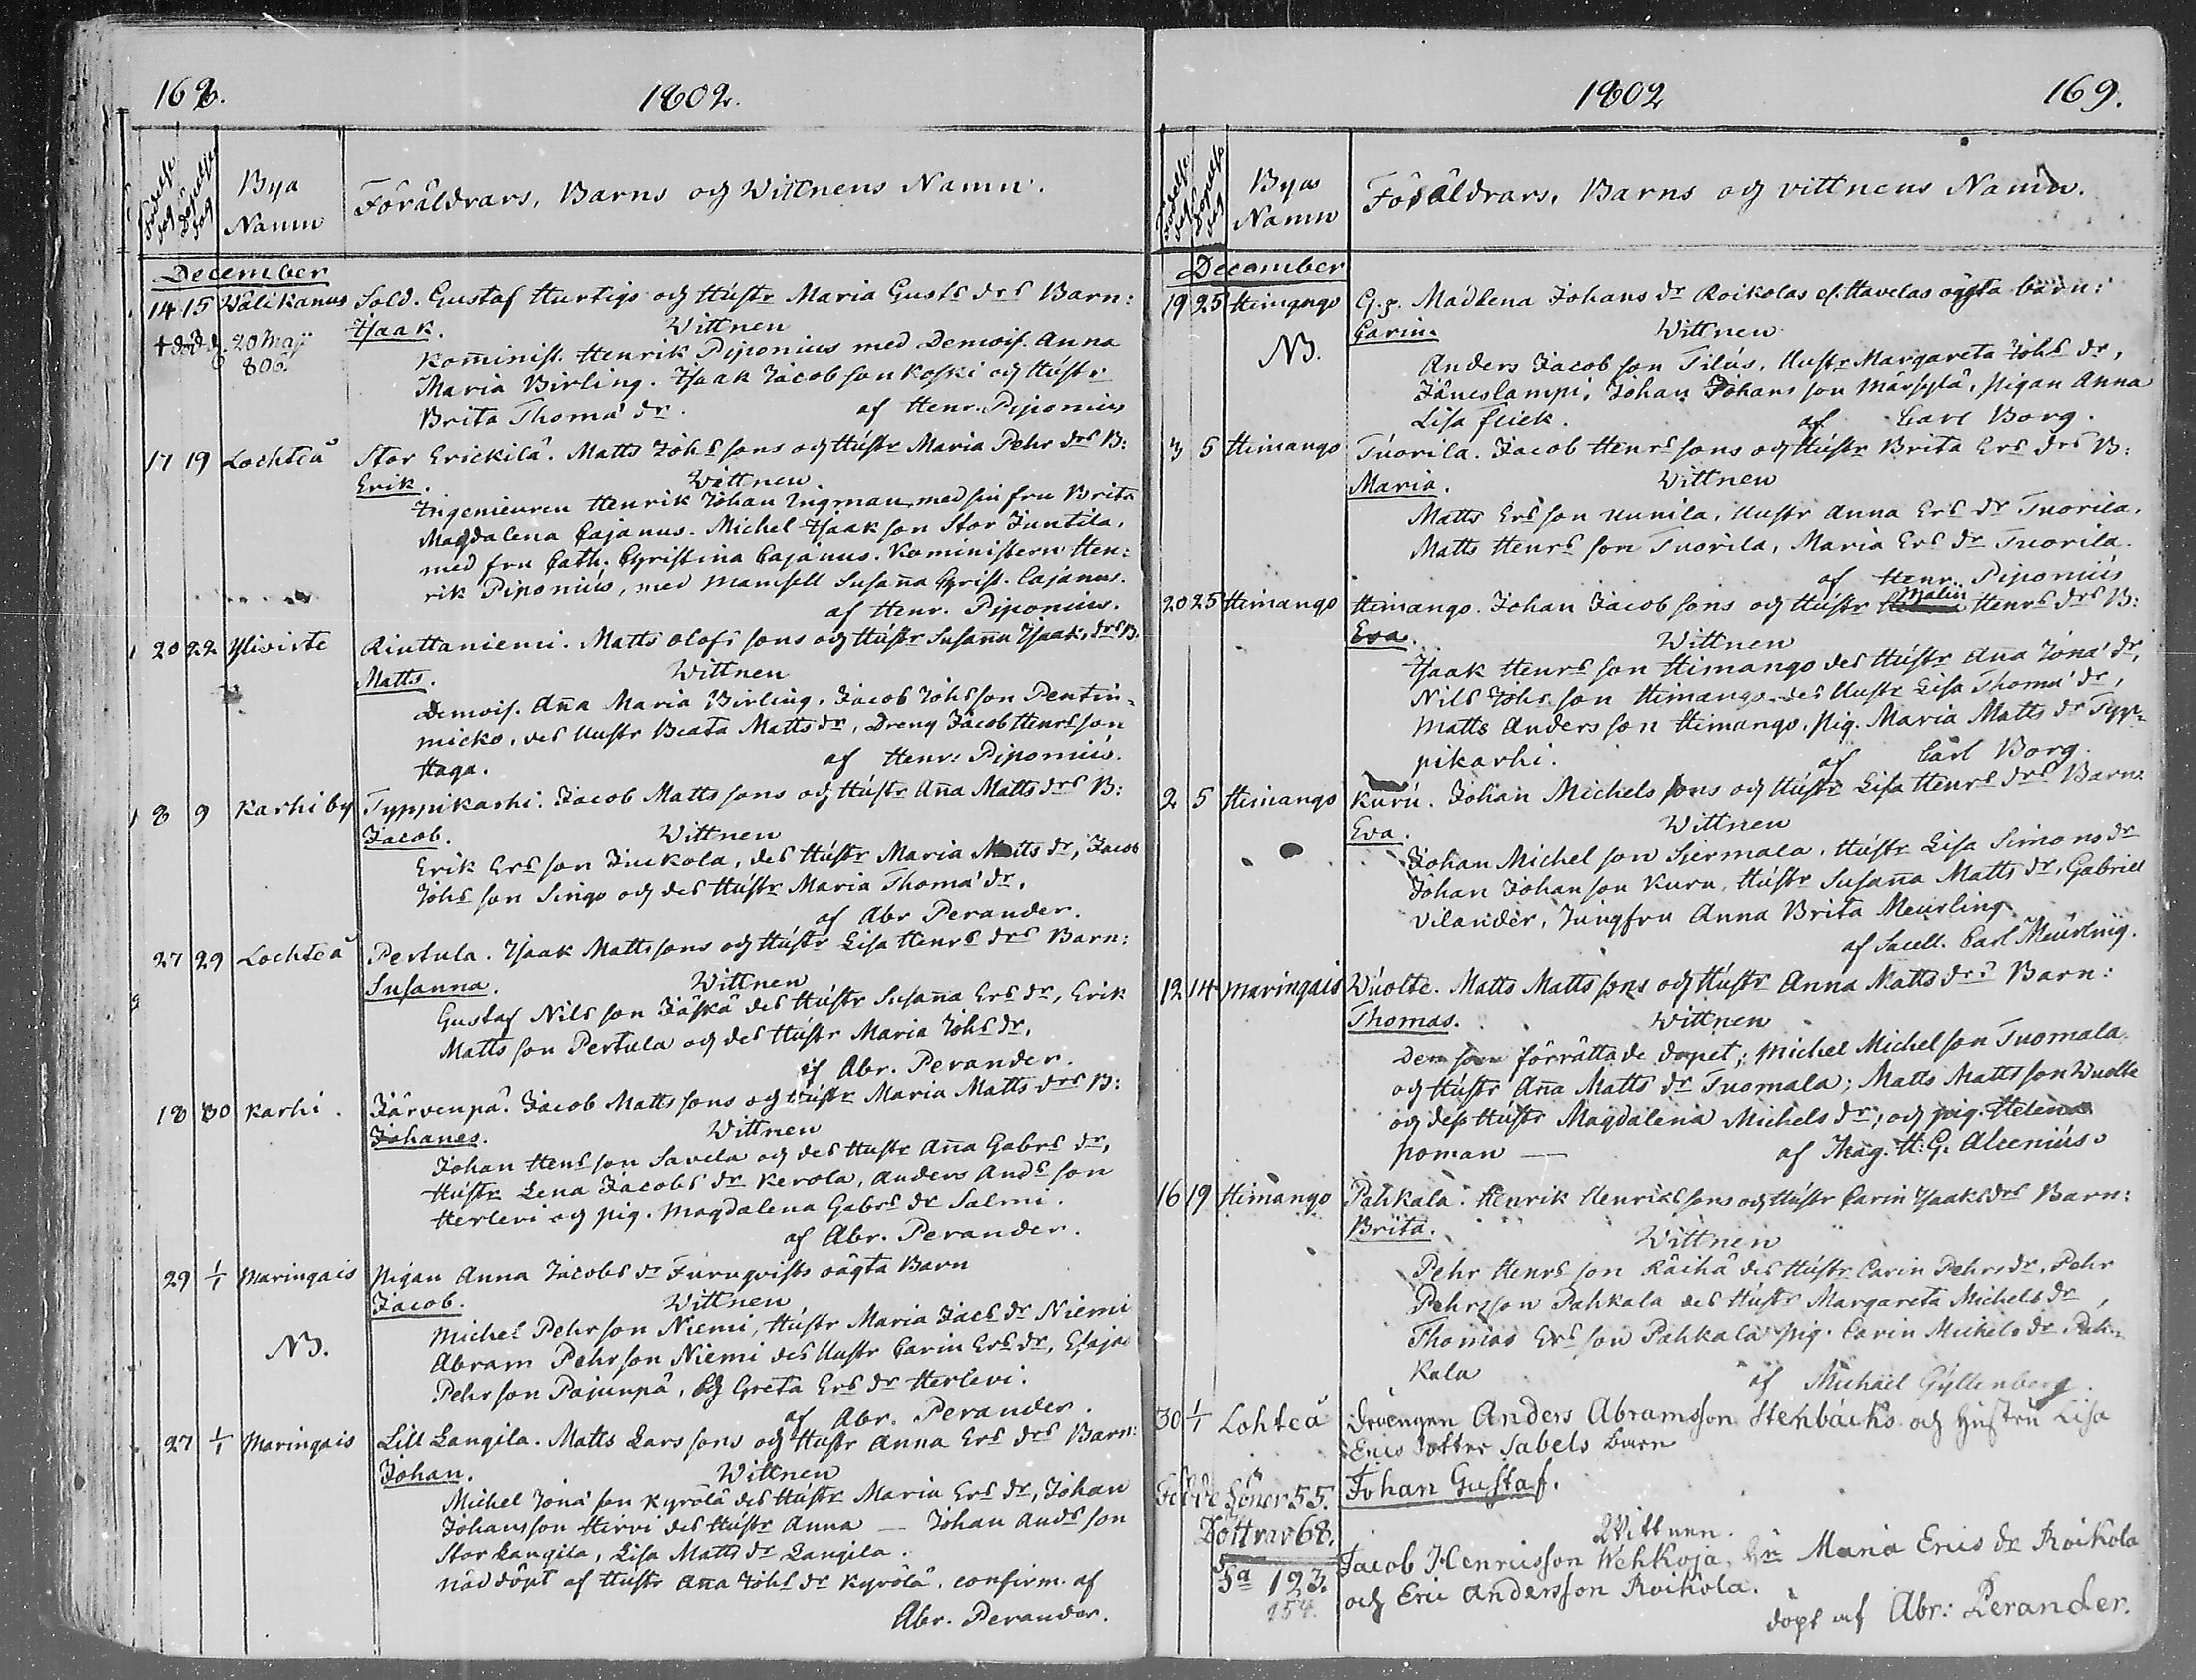 168.
1802.
Födelse dag
Döpelse dag
Bya Namn
Föräldrars, Barns og Wittnens Namn.
December
14 15 Wälikanus Sold. Gustaf Hurtigs og Hustr Maria Gusts drs Barn:
† död d. 20 Maji 806 Isaak. Wittnen
Kominist. Henrik Piponius med Demois. Anna
Maria Birling. Isaak Jacobson Koski og Hustr
Brita Thoma dr. af Henr. Piponius
17 19 Lochteå Stor Erickilä. Matts Johs sons og Hustr Maria Pehr drs B:
Erik. Wittnen.
Ingenieuren Henrik Johan Ingman med sin fru Brita
Magdalena Cajanus. Michel Isaak son Stor Juntila,
med fru Cath. Christina Cajanus. Kominstern Hen:
rik Piponius, med Mamsell Susana Christ. Cajanus.
af Henr. Piponius.
20 22 Yliviste Riuttaniemi. Matts Olofs sons og Hustr Susana Isaak, drs B.
Matts. Wittnen
Demois. Ana Maria Birling. Jacob Johsson Pentin-
micko, des Hustr Beata Matts dr, Dreng Jacob Henrs son
Haga. af Henr: Piponius.
8 9 Karhi by Typpikarhi. Jacob Matts sons og Hustr Ana Matts drs B:
Jacob. Wittnen
Erik Ers son Juckola, des Hustr Maria Matts dr, Jacob
Johs son Singo og des Hustr Maria Thoma dr.
af Abr Perander.
27 29 Lochteå Pertula. Isaak Mattssons og Hustr Lisa Henrs drs Barn:
Susanna. Wittnen
Gustaf Nils son Jäskä des Hustr Susana Ers dr, Erik
Matts son Pertula og des Hustr Maria Johs dr.
af Abr. Perander.
18 30 Karhi. Järvenpä. Jacob Matts sons og Hustr Maria Matts drs B:
Johanes. Wittnen
Johan Hens son Savela og des Hustr Ana Gabrs dr,
Hustr Lena Jacobs dr Kerola, Anders Ands son
Herlevi og pig. Magdalena Gabrs dr Salmi.
af Abr. Perander.
29 1/1 Maringais Pigan Anna Jacobs dr Furuqvists oägta Barn
Jacob. Wittnen
NB. Michel Pehrson Niemi, Hustr Maria Jacs dr Niemi
Abram Pehrson Niemi des Hustr Carin Ers dr, Esajas
Pehrson Pajunpä, og Greta Ers dr Herlevi.
af Abr. Perander.
27 1/1 Maringais Lill Langila. Matts Lars sons og Hustr Anna Ers drs Barn:
Johan. Wittnen
Michel Jona son Kyrölä des Hustr Maria Ers dr, Johan
Johansson Hirvi des Hustr Anna — Johan Ands son
Stor Langila, Lisa Matts dr Langila.
nöd döpt af Hustr Ana Johs dr Kyrölä, confirm. af
Abr. Perander.
1802
169.
Födelse dag
Döpelse dag
Byas Namn
Föräldrars, Barns og vittnens Namn.
December
19 25 Himango Madlena Johans dr Roikolas Havelas oägta barn:
NB. Carin. Wittnen
Anders Jacob son Tilus, Hustr Margareta Johs dr,
Jäneslampi, Johan Johans son Märsylä, pigan Anna
Lisa Flick. af Carl Borg.
3 5 Himango Tuorila. Jacob Henrs sons og Hustr Brita Ers drs B:
Maria. Wittnen
Matts Ers son Uunila, Hustr Anna Ers dr Tuorila.
Matts Henrs son Tuorila, Maria Ers dr Tuorila.
af Henr. Piponius
20 25 Himango Himango. Johan Jacob sons og Hustr Malin Henrs drs B:
Eva. Wittnen
Isaak Henrs son Himango des Hustr Ana Jona dr,
Nils Johs son Himango des Hustr Lisa Thoma dr,
Matts Anders son Himango, pig. Maria Matts dr Typ-
pikarhi. af Carl Borg.
2 5 Himango Kuru. Johan Michels sons og Hustr Lisa Henrs drs Barn:
Eva. Wittnen
Johan Michel son Siermala, Hustr Lisa Simons dr
Johan Johan son Kuru, Hustr Susana Matts dr, Gabriel
Vilander, Jungfru Anna Brita Meurling.
af Sacell. Carl Meurling.
12 14 Maringais Wuolte. Matts Matts sons og Hustr Anna Matts drs Barn:
Thomas. Wittnen
Den som förrättade dopet; Michel Michelson Tuomala
og Hustr Ana Matts dr Tuomala; Matts Matts son Wuolte
og dess Hustr Magdalena Michels dr, og pig. Helena
Poman — af Mag. H: G. Alcenius.
16 19 Himango Pahkala. Henrik Henrikssons og Hustr Carin Isaaks drs Barn:
Brita. Wittnen
Pehr Henrs son Räihä des Hustr Carin Pehrs dr, Pehr
Pehrsson Pahkala des Hustr Margareta Michels dr,
Thomas Ers son Pahkala pig. Carin Michels dr Pah-
kala af Michael Gyllenberg.
30 1/1 Lohteå Drengen Anders Abramsson Stenbacks og Hustru Lisa
Erics dotter Sabels Barn
Födde Söner 55. Johan Gustaf.
Döttrar 68. Wittnen.
Sa 123. Jacob Henricsson Wehkoja, Hu Maria Erics dr Roikola
254. och Eric Andersson Roikola.
döpt af Abr: Perander.